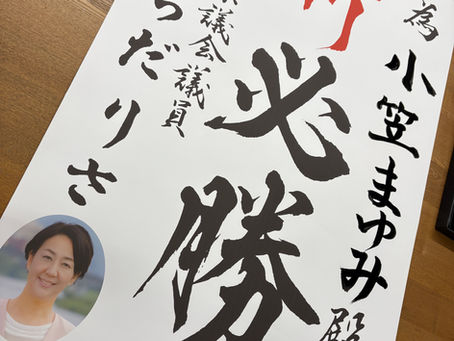 為 小笠まゆみ殿
必勝
議会議員
だりさ